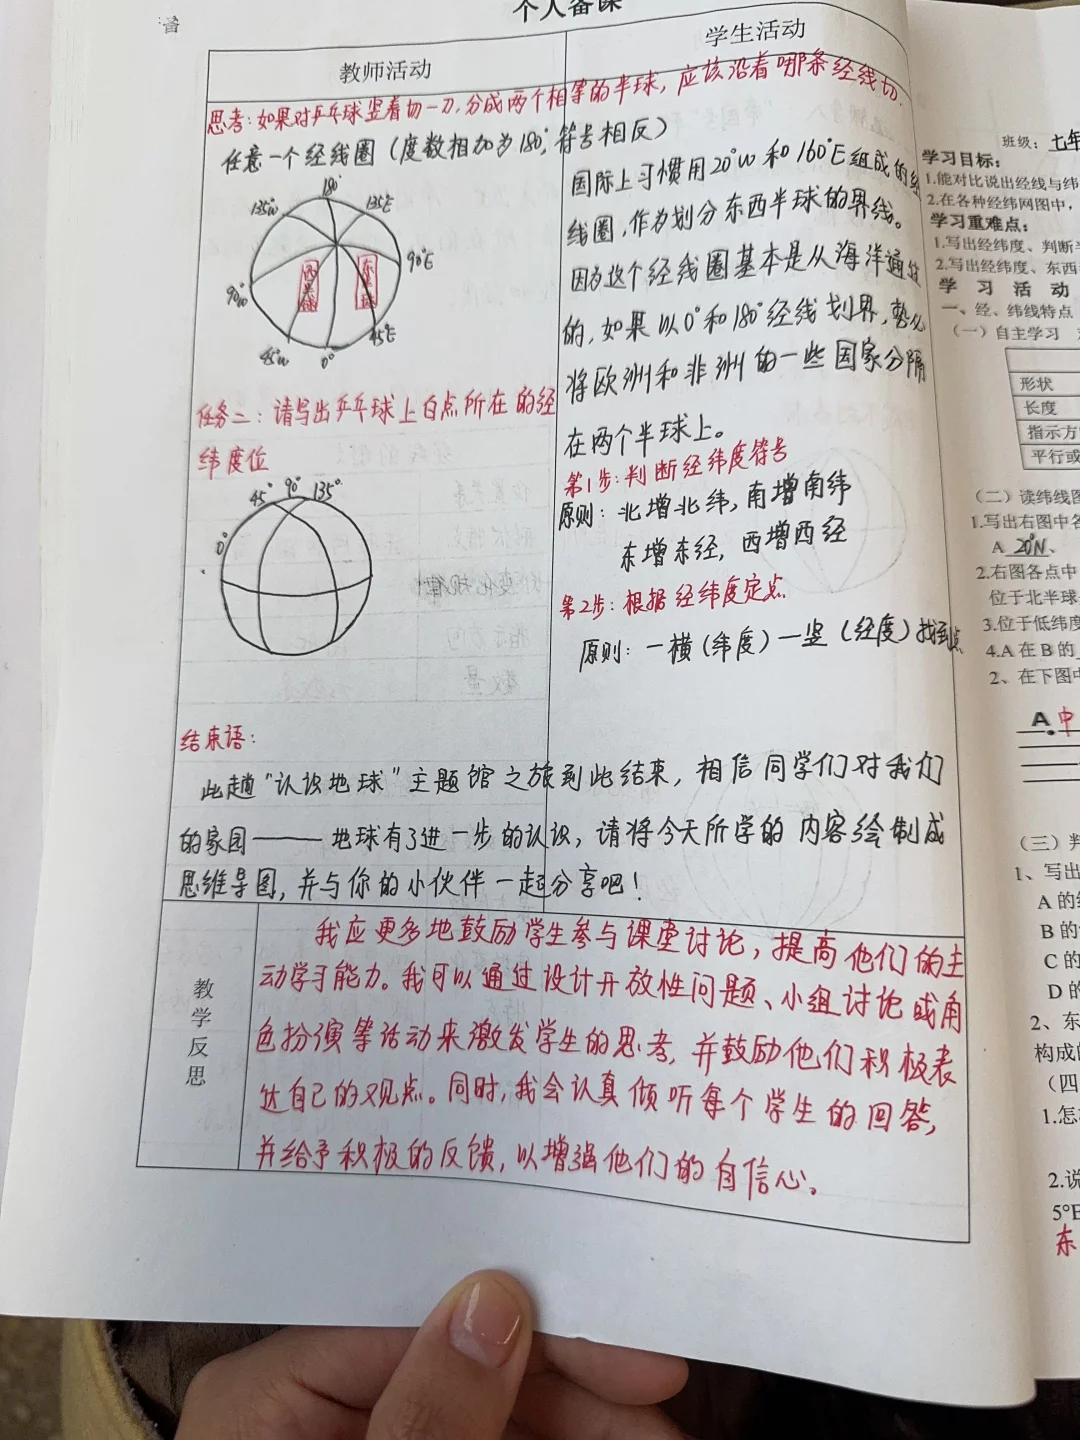 个人备课
教师活动
学生活动
思考:如果对乒乓球竖着切一刀,分成两个相等的半球,应该沿着哪条经线切.
任意一个经线圈(度数相加为180°,符号相反)
180°
135°W
135°E
90°W
90°E
西半球
东半球
45°W
0°
45°E
任务二:请写出乒乓球上白点所在的经
纬度位
45° 90° 135°
0°
国际上习惯用20°W和160°E组成的经
线圈,作为划分东西半球的界线。
因为这个经线圈基本是从海洋通过
的,如果以0°和180°经线划界,势必
将欧洲和非洲的一些国家分隔
在两个半球上。
第1步:判断经纬度符号
原则:北增北纬,南增南纬
东增东经,西增西经
第2步:根据经纬度定点
原则:一横(纬度)一竖(经度)找到点
结束语:
此趟“认识地球”主题馆之旅到此结束,相信同学们对我们
的家园——地球有了进一步的认识,请将今天所学的内容绘制成
思维导图,并与你的小伙伴一起分享吧!
教学反思
我应更多地鼓励学生参与课堂讨论,提高他们的主
动学习能力。我可以通过设计开放性问题、小组讨论或角
色扮演等活动来激发学生的思考,并鼓励他们积极表
达自己的观点。同时,我会认真倾听每个学生的回答,
并给予积极的反馈,以增强他们的自信心。
班级:七年
学习目标:
1.能对比说出经线与纬
2.在各种经纬网图中,
学习重难点:
1.写出经纬度、判断半
2.写出经纬度、东西
学 习 活 动
一、经、纬线特点
(一)自主学习
形状
长度
指示方
平行或
(二)读纬线图
1.写出右图中各
A 20°N、
2.右图各点中
位于北半球
3.位于低纬度
4.A在B的
2、在下图中
A 中
(三)判
1、写出
A的经
B的
C的
D的
2、东
构成的
(四
1.怎
2.说
5°E
东